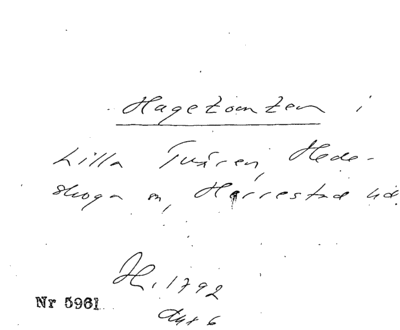 Hagetomten i
Lilla Tvären, Hede-
skoga sn, Herrestad hd.
H. 1792
Nr 5961